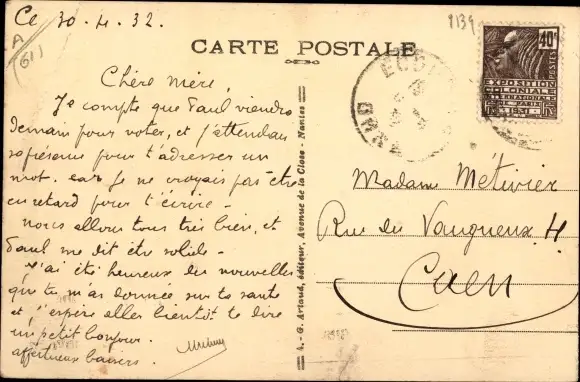 Ce 30.4.32.
A
(61)
8139
CARTE POSTALE
40c
POSTES
EXPOSITION
COLONIALE
INTERNATIONALE
PARIS 1931
ORNE
Chère Mère,
Je compte que Paul viendra
demain pour voter, et j'attendais
sa présence pour t'adresser un
mot. car je ne croyais pas être
en retard pour t'écrire -
nous allons tous très bien, et
Paul me dit être solide -
J'ai été heureux des nouvelles
que tu m'as donnée sur ta santé
et j'espère aller bientôt te dire
un petit bonjour.
affectueux baisers.
4. - G. Artaud, éditeur, Avenue de la Close - Nantes
Madame Métivier
Rue du Vaugueux 4
Caen